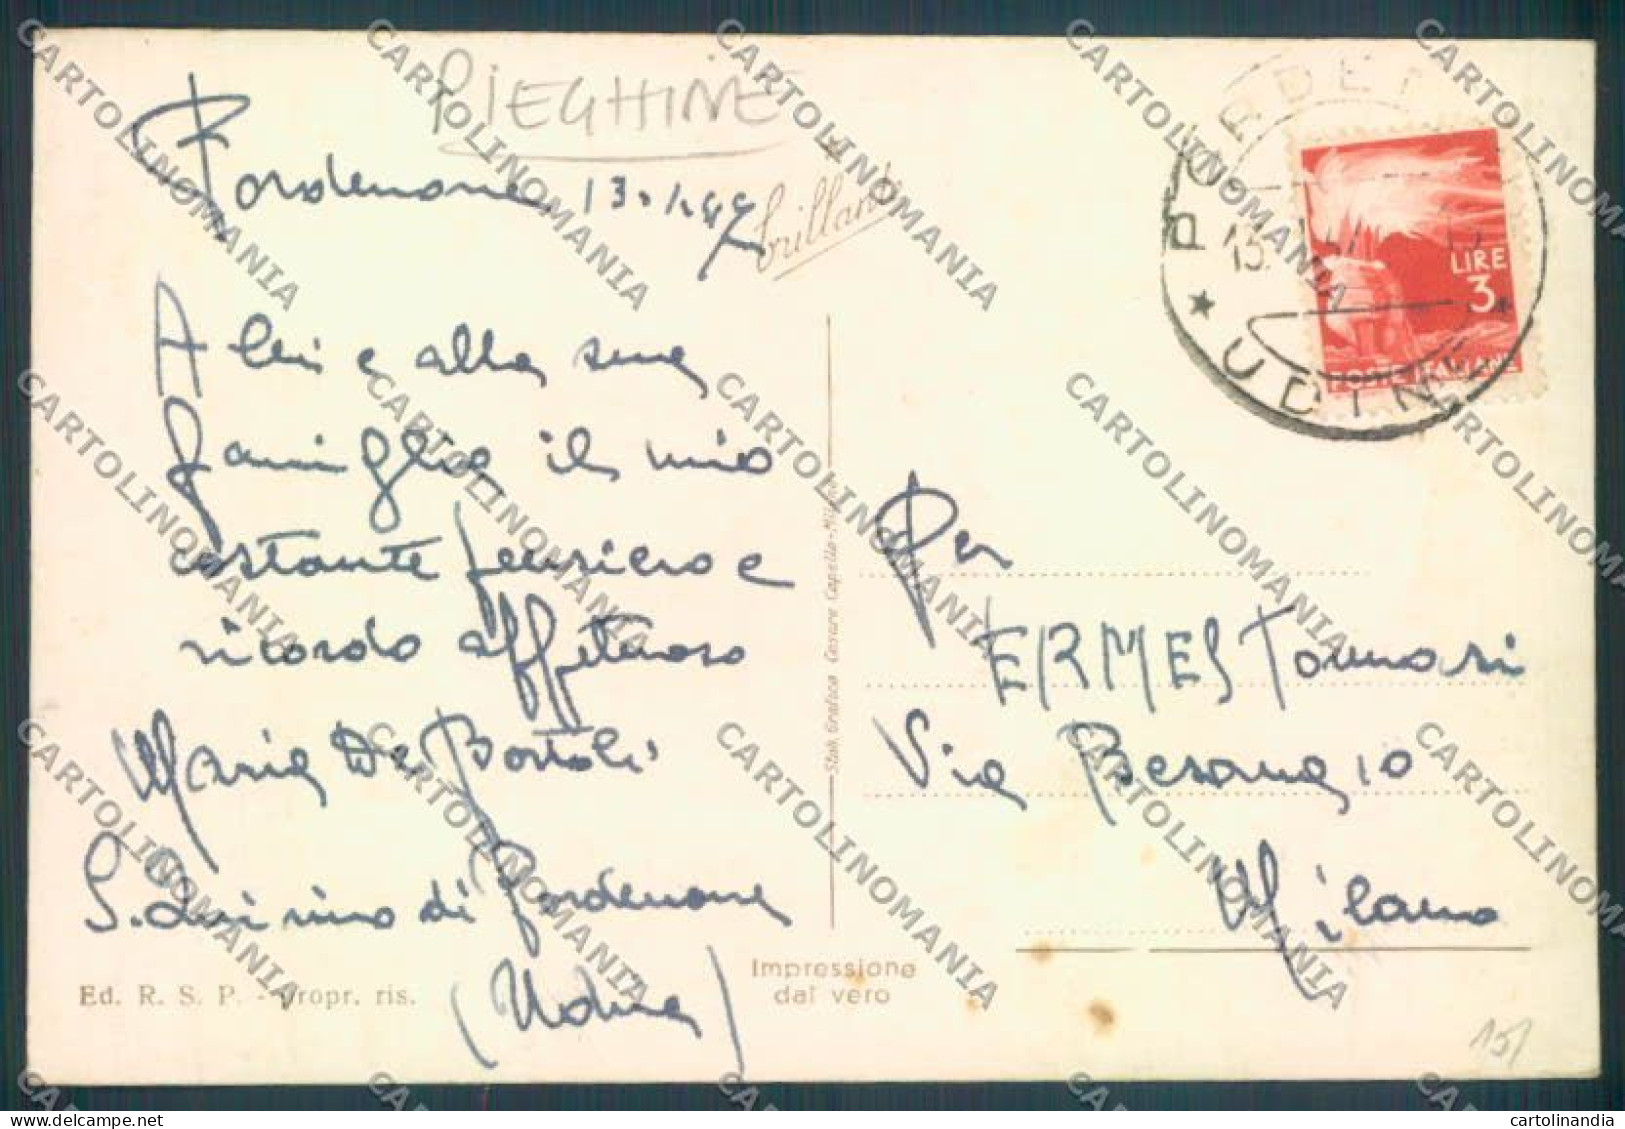 PIEGHINE
Pordenone 13.1.47
brillant
A lei e alla sua
famiglia il mio
costante pensiero e
ricordo affettuoso
Maria De Bortoli
S. Quirino di Pordenone
(Udine)
Ed. R. S. P. - Propr. ris.
Impressione
dal vero
Stab. Grafico Cesare Capello - Milano
PORDENONE
13.1.47
* UDINE *
LIRE
3
POSTE ITALIANE
Per
ERMES Tommasi
Via
Milano
15/
CARTOLINOMANIA
cartolinandia